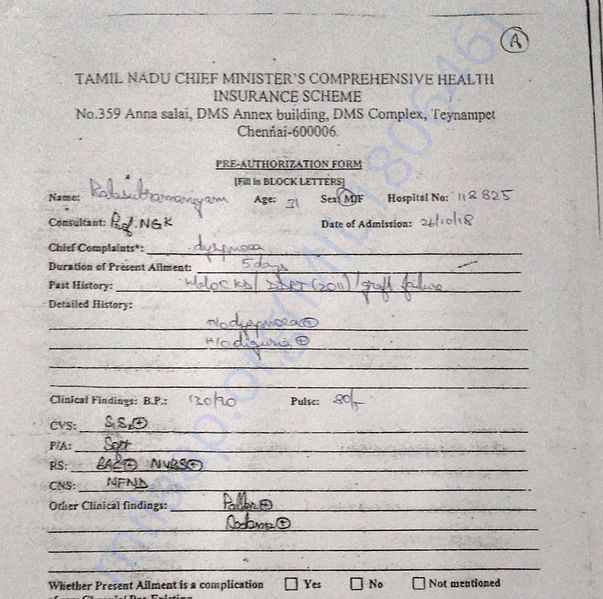 A
TAMIL NADU CHIEF MINISTER'S COMPREHENSIVE HEALTH
INSURANCE SCHEME
No.359 Anna salai, DMS Annex building, DMS Complex, Teynampet
Chennai-600006
PRE-AUTHORIZATION FORM
[Fill in BLOCK LETTERS]
Name: Balasubramaniyam Age: 31 Sex M/F Hospital No: 118825
Consultant: Prof. NGK Date of Admission: 26/10/18
Chief Complaints*: dyspnoea
Duration of Present Ailment: 5 days
Past History: (2011) / graft failure
Detailed History:
H/o dyspnoea ⊕
H/o oliguria ⊕
Clinical Findings: B.P.: 130/90 Pulse: 80/-
CVS: S1S2 ⊕
P/A: Soft
RS: BAE ⊕ NVBS ⊕
CNS: NFND
Other Clinical findings: Pallor ⊕
Oedema ⊕
Whether Present Ailment is a complication Yes No Not mentioned